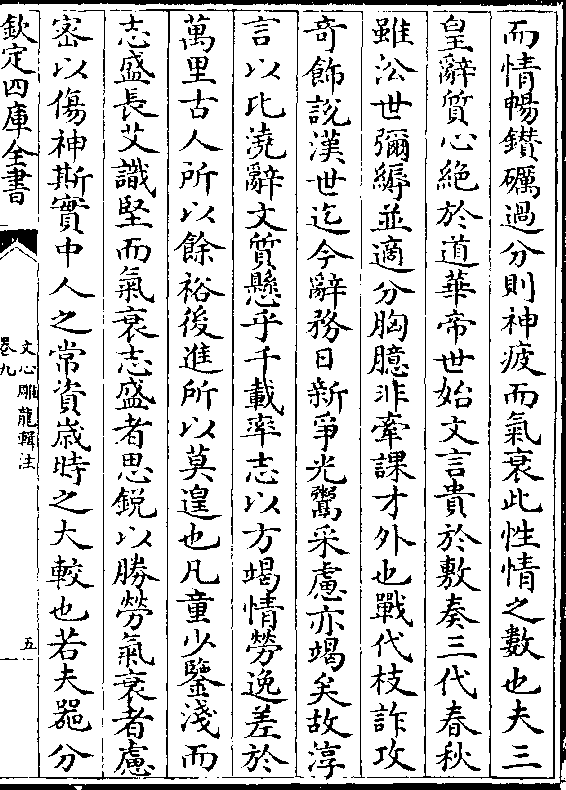 而情暢鑚礪過分則神疲而氣衰此性情之數也夫三
皇辭質心絶於道華帝世始文言貴於敷奏三代春秋
雖㳂世彌縟並適分胸臆非牽課才外也戰代枝詐攻
奇飾説漢世迄今辭務日新爭光鬻采慮亦竭矣故淳
言以比澆辭文質懸乎千載率志以方竭情勞逸差於
萬里古人所以餘裕後進所以莫遑也凡童少鑒淺而
志盛長艾識堅而氣衰志盛者思鋭以勝勞氣衰者慮
宻以傷神斯實中人之常資歳時之大較也若夫器分
欽定四庫全書
文心雕龍輯注
卷九
五